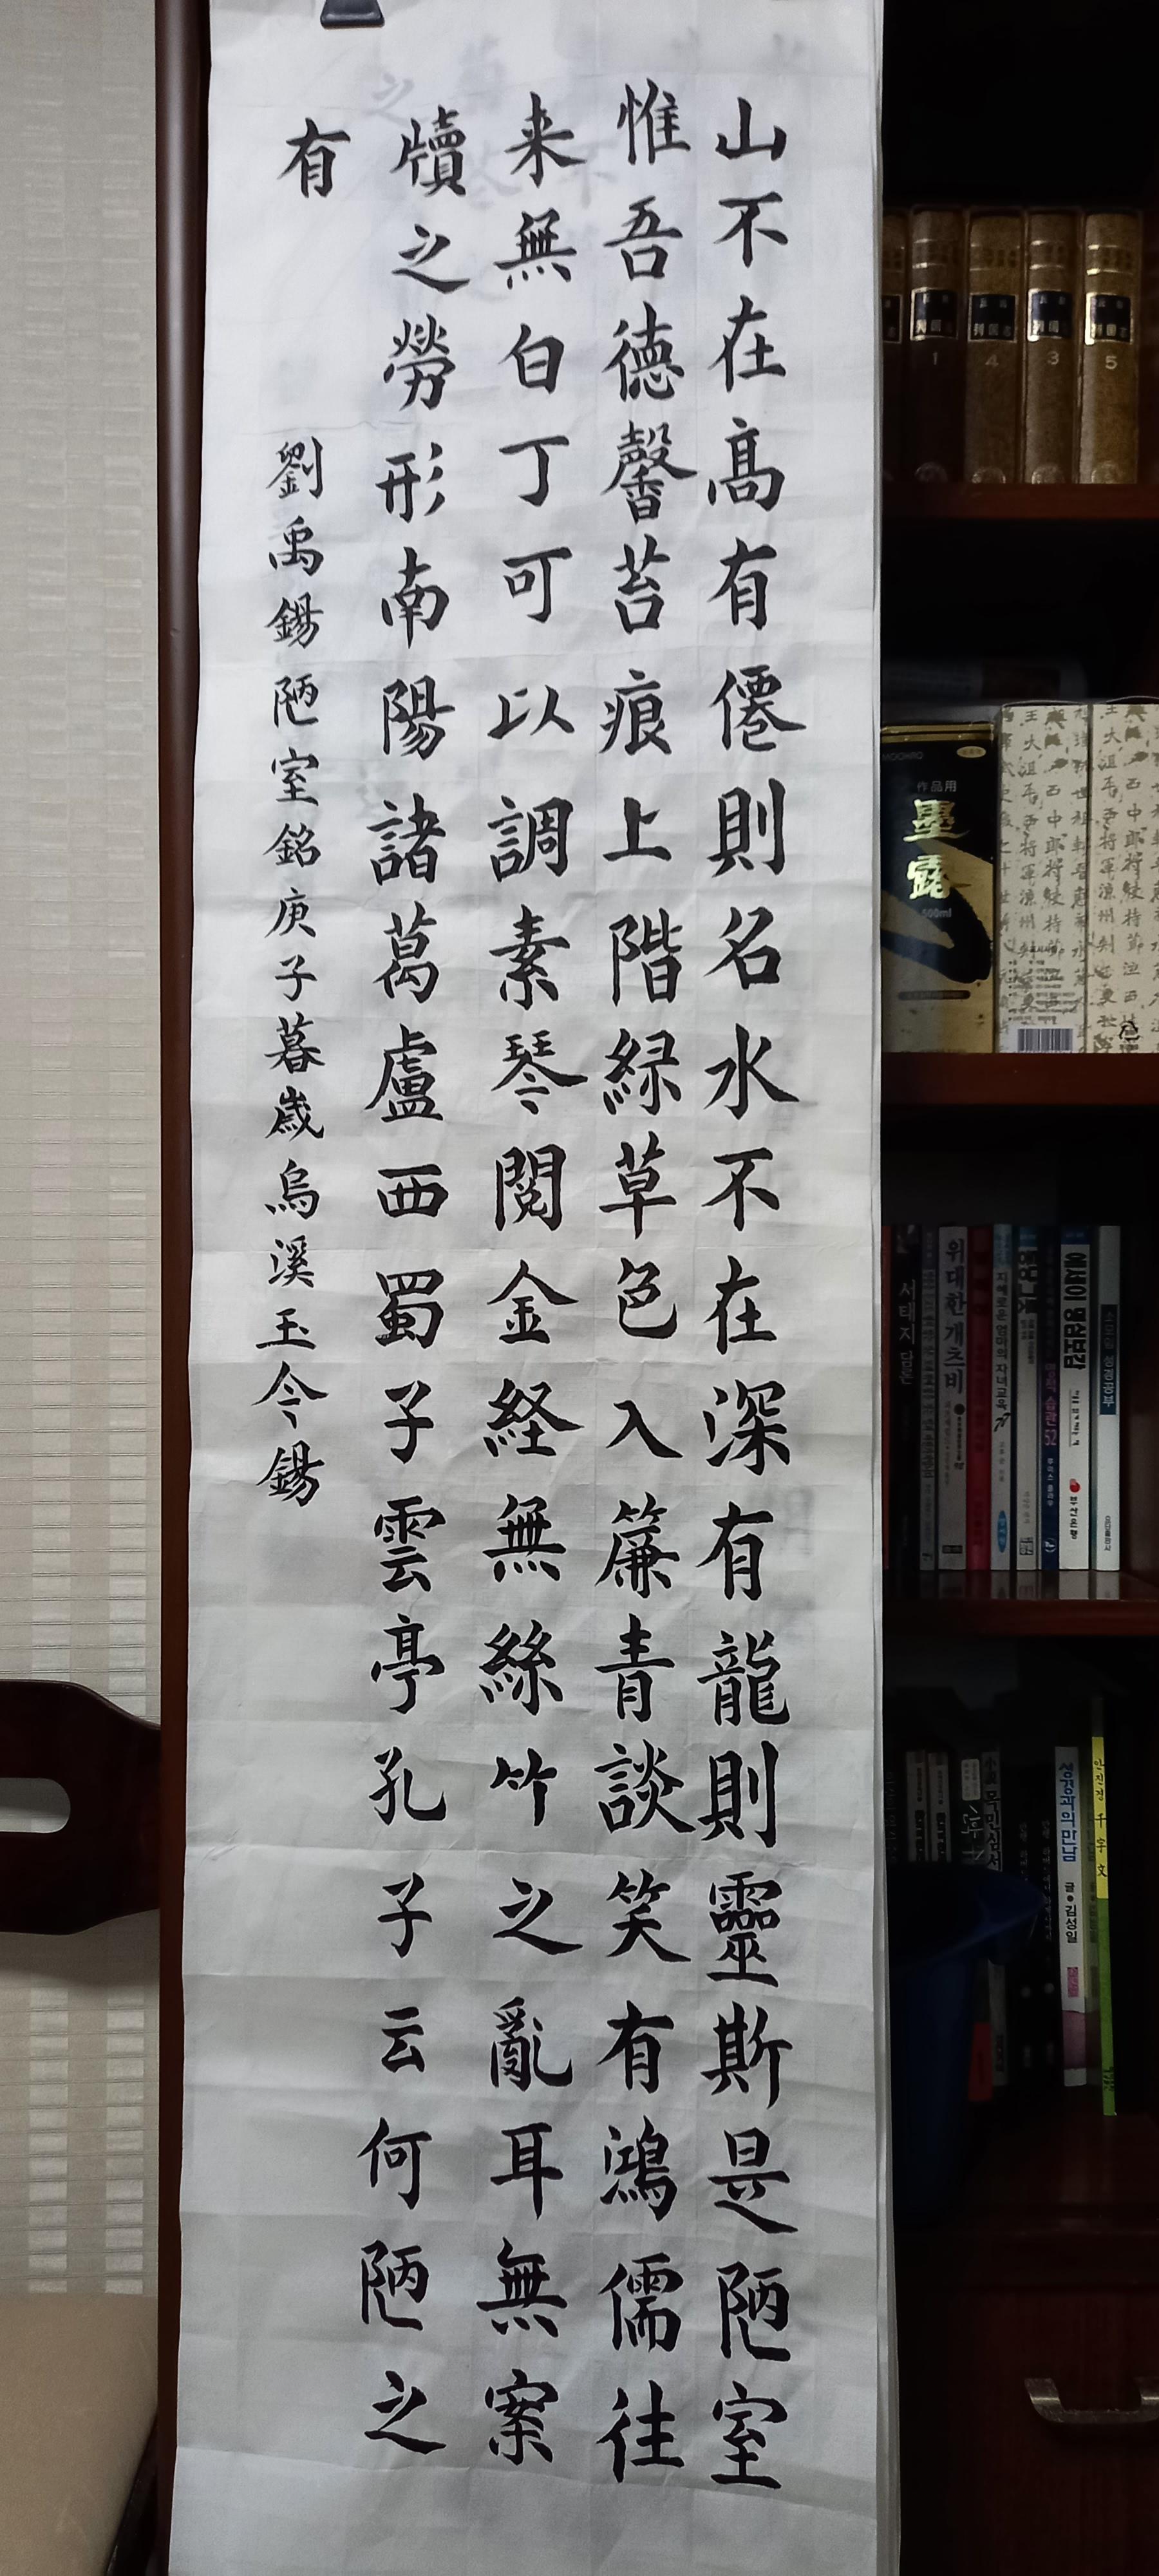 山不在高有僊則名水不在深有龍則靈斯是陋室
惟吾德馨苔痕上階緑草色入簾青談笑有鴻儒往
来無白丁可以調素琴閱金経無絲竹之亂耳無案
牘之勞形南陽諸葛盧西蜀子雲亭孔子云何陋之
有
劉禹錫陋室銘庚子暮歲烏溪玉今錫
1
4
3
5
作品用
墨露
500ml
위대한 개츠비
서태지 담론
성경과의 만남
글 김성일
千字文